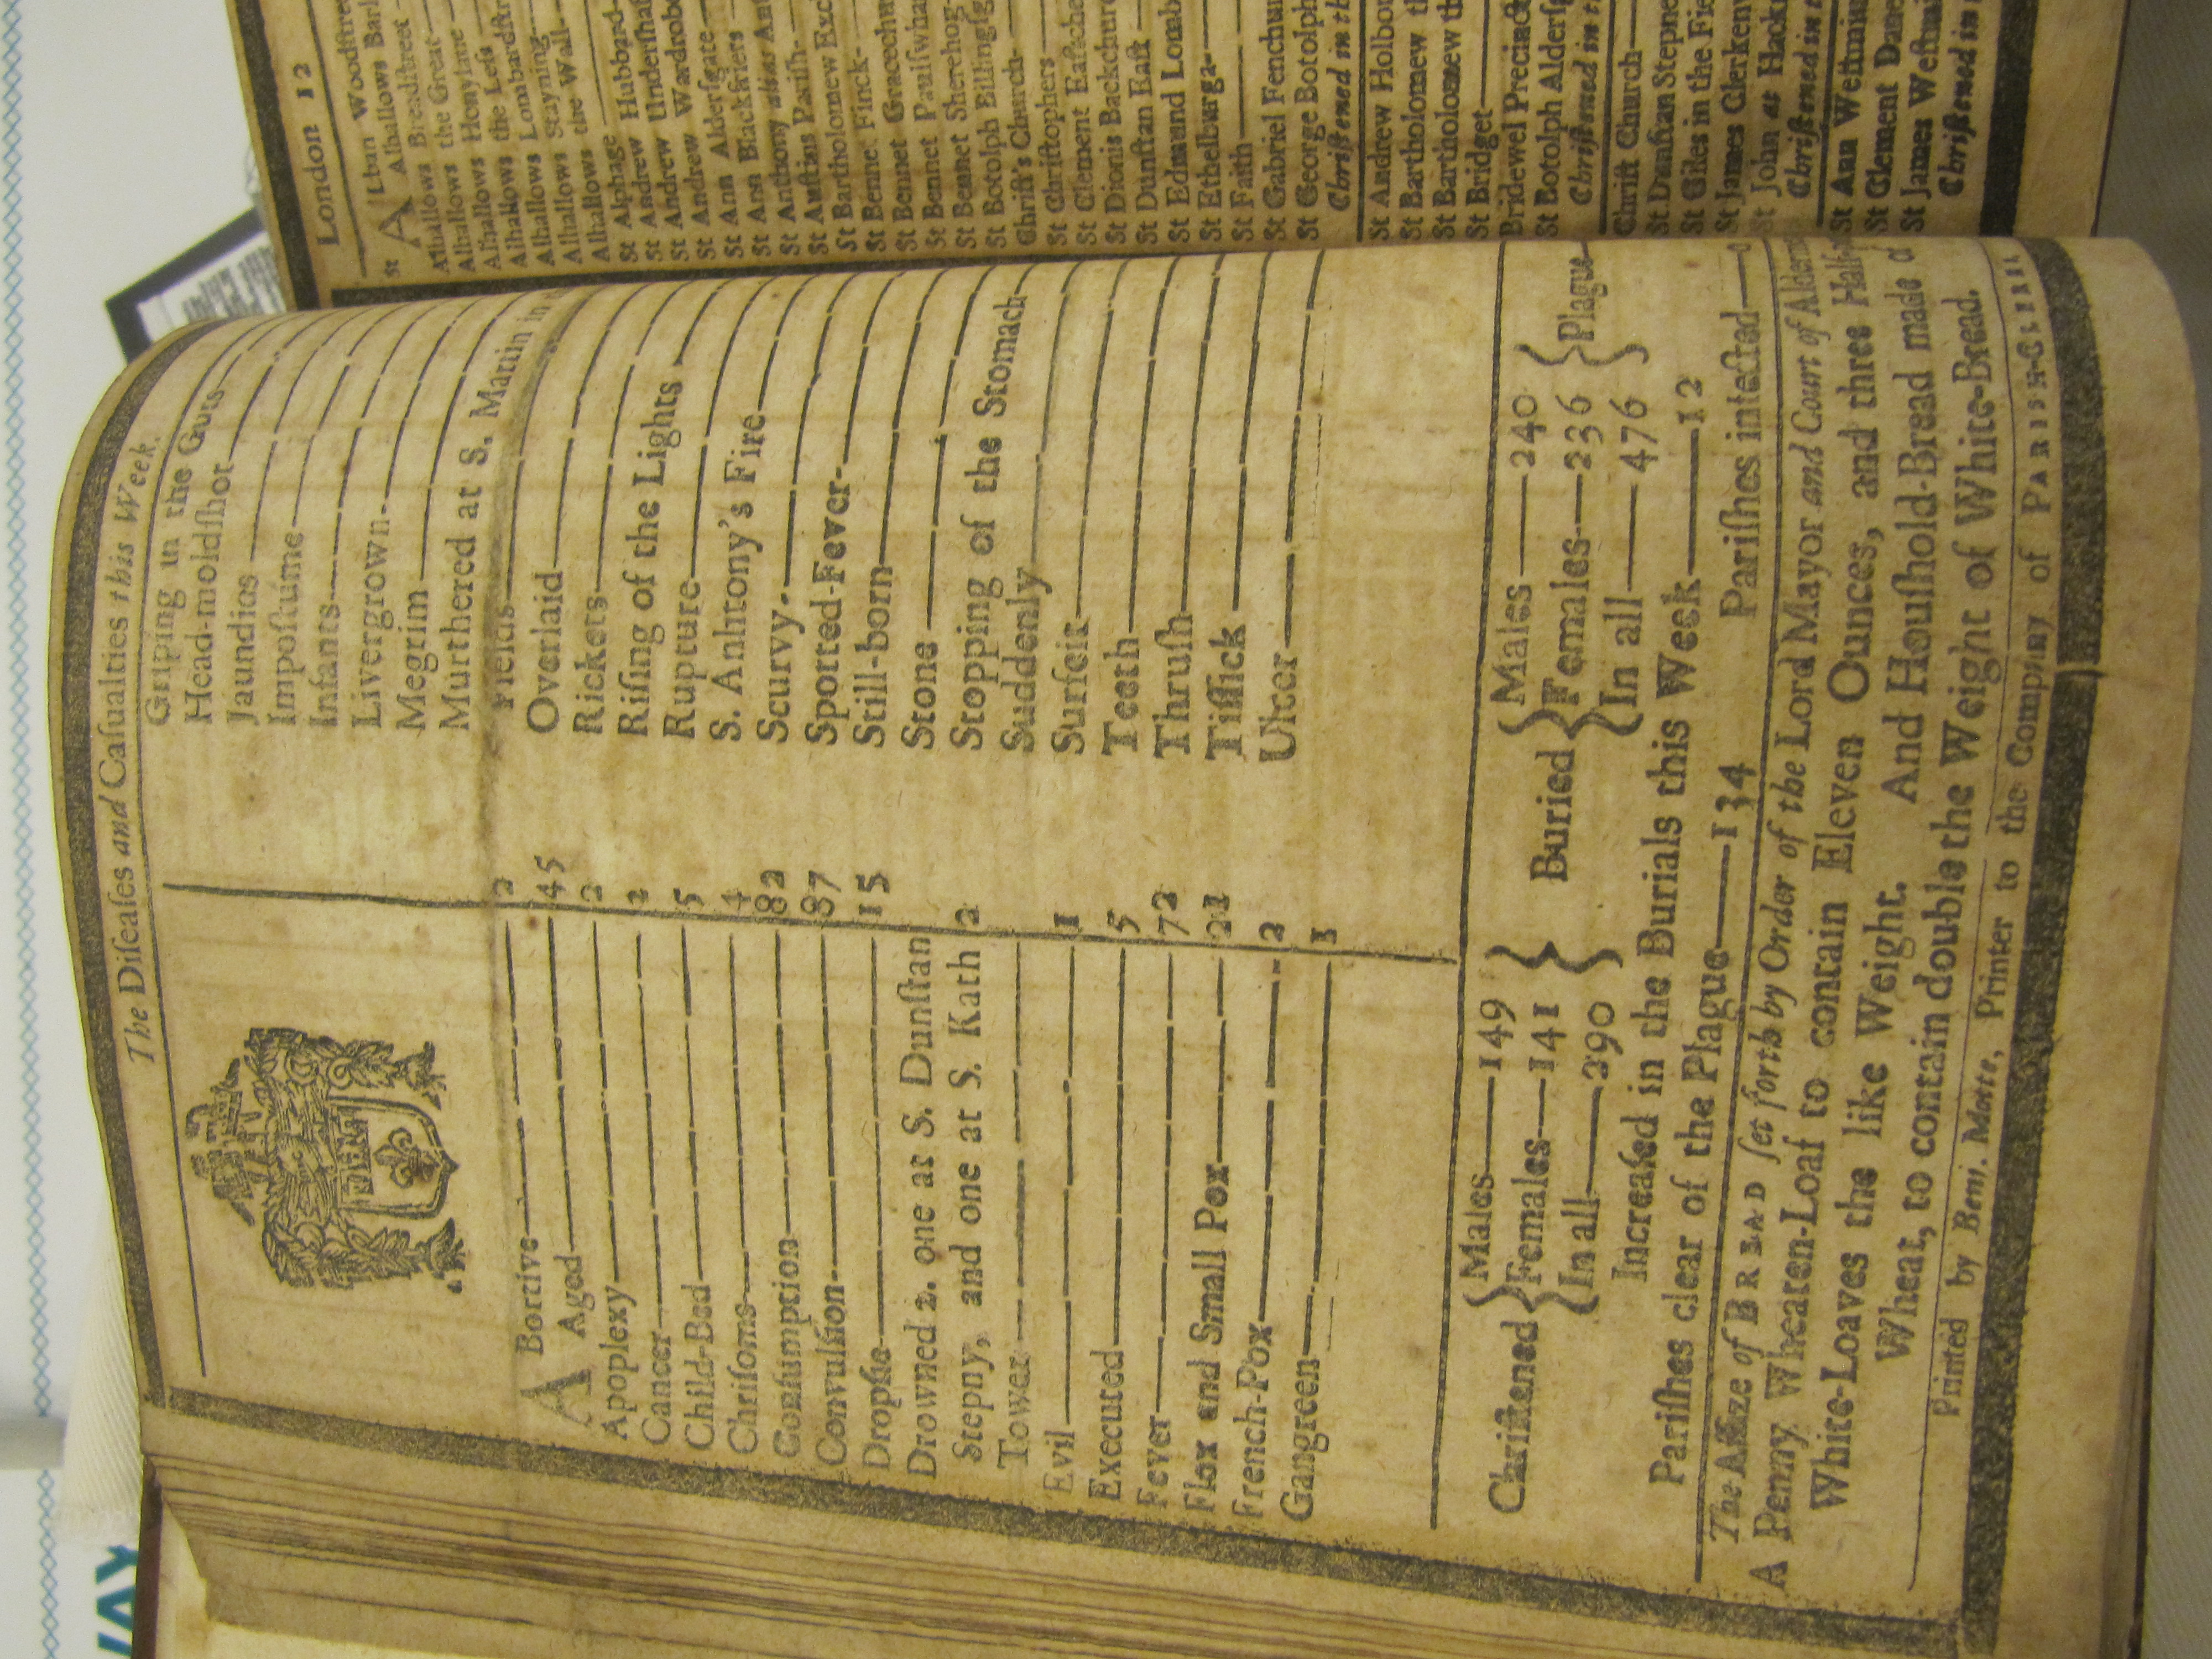 The Diſeaſes and Caſualties this Week.
A Bortive 2
Aged 45
Apoplexy 2
Cancer 2
Child-Bed 5
Chriſoms 4
Conſumption 82
Convulſion 87
Dropſie 15
Drowned 2. one at S. Dunſtan
Stepny, and one at S. Kath
Tower 2
Evil 1
Executed 5
Fever 72
Flox and Small Pox 21
French-Pox 2
Gangreen 1
Griping in the Guts
Head-moldſhot
Jaundies
Impoſtume
Infants
Livergrown
Megrim
Murthered at S. Martin in
Fields
Overlaid
Rickets
Riſing of the Lights
Rupture
S. Anhtony's Fire
Scurvy
Spotted-Fever
Still-born
Stone
Stopping of the Stomach
Suddenly
Surfeit
Teeth
Thruſh
Tiſſick
Ulcer
Chriſtened { Males 149
Females 141
In all 290 }
Buried { Males 240
Females 236
In all 476 } Plague
Increaſed in the Burials this Week 12
Pariſhes clear of the Plague 134 Pariſhes infected 0
The Aſſize of BREAD ſet forth by Order of the Lord Mayor and Court of
A Penny Wheaten-Loaf to contain Eleven Ounces, and three
White-Loaves the like Weight. And Houſhold-Bread made
Wheat, to contain double the Weight of White-Bread.
Printed by Benj. Motte, Printer to the Company of PARISH-CLERKS
London 12
St A'Lban Woodſtree
Alhallows Bark
Alhallows Breadſtreet
Alhallows the Great
Alhallows Honylane
Alhallows the Leſs
Alhallows Lombardſtr
Alhallows Stayning
Alhallows the Wall
Alhallows
St Alphage
St Andrew Hubbard
St Andrew Underſhaf
St Andrew Wardrobe
St Ann Alderſgate
St Ann Blackfriers
St Anthony alias Ant
St Auſtins Pariſh
St Bartholomew Exc
St Bennet Finck
St Bennet Gracechu
St Bennet Paulſwha
St Bennet Sherehog
St Botolph Billingſg
Chriſt's Church
St Chriſtophers
St Clement Eaſtche
St Dionis Backchurc
St Dunſtan Eaſt
St Edmund Lomb
St Ethelburga
St Faith
St Gabriel Fenchur
St George Botolph
Chriſtened in th
St Andrew Holbor
St Bartholomew th
St Bartholomew th
St Bridget
Bridewel Precinct
St Botolph Alderſ
Chriſtened in t
Chriſt Church
St Dunſtan Stepne
St Giles in the Fie
St James Clerkenw
St John at Hackn
Chriſtened in
St Ann Weſtmin
St Clement Dane
St James Weſtmi
Chriſtened in
WAY